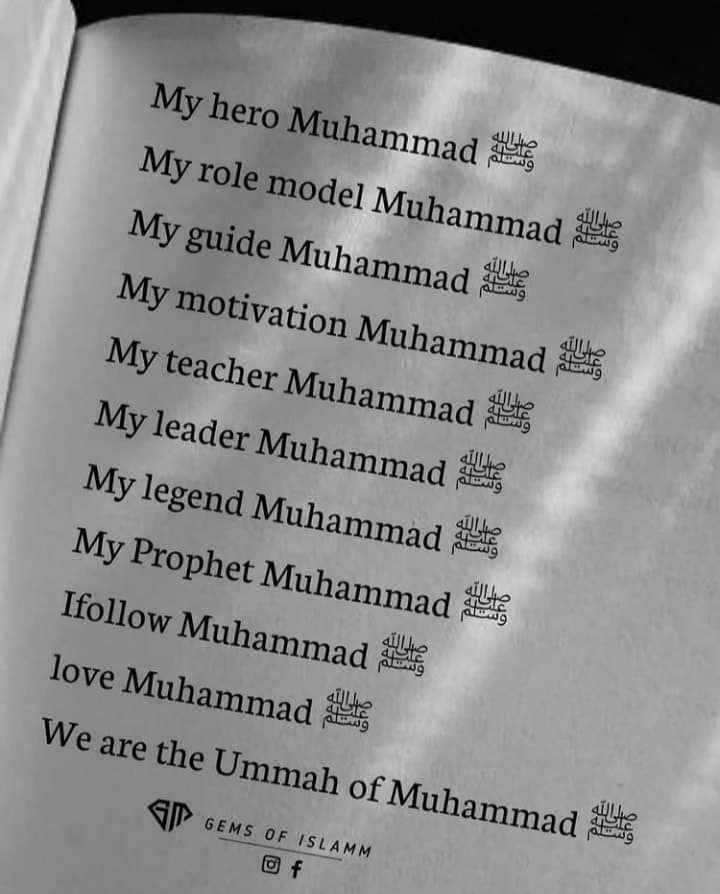 My hero Muhammad ﷺ
My role model Muhammad ﷺ
My guide Muhammad ﷺ
My motivation Muhammad ﷺ
My teacher Muhammad ﷺ
My leader Muhammad ﷺ
My legend Muhammad ﷺ
My Prophet Muhammad ﷺ
Ifollow Muhammad ﷺ
love Muhammad ﷺ
We are the Ummah of Muhammad ﷺ
GEMS OF ISLAMM